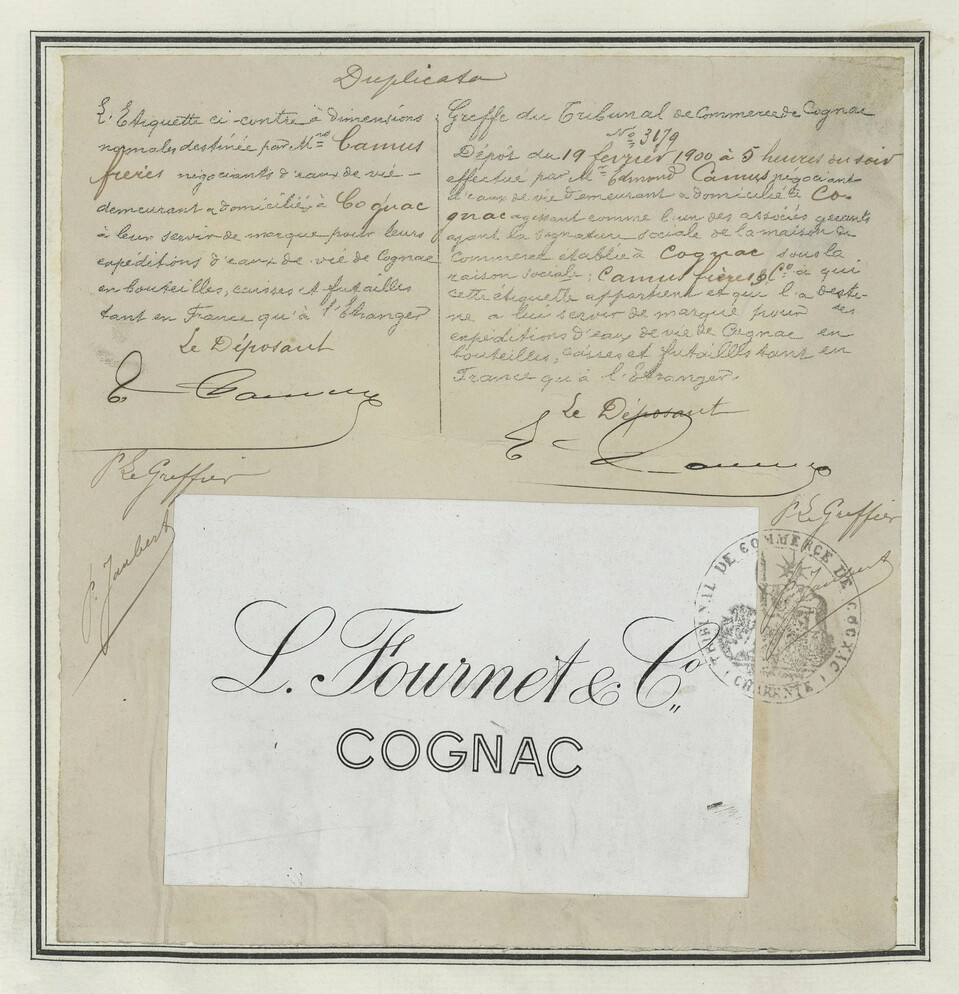 Duplicata
L'Etiquette ci-contre à dimensions
normales destinée par Mrs Camus
frères négociants d'eaux de vie -
demeurant & domiciliés à Cognac
à leur servir de marque pour leurs
expéditions d'eaux de vie de Cognac
en bouteilles, caisses et futailles
tant en France qu'à l'Etranger
Le Déposant
E Camus
P Le Greffier
P. Jaubert
Greffe du Tribunal de Commerce de Cognac
No 3179
Dépôt du 19 février 1900 à 5 heures du soir
effectué par Mr Edmond Camus négociant
d'eaux de vie demeurant & domicilié à Co-
gnac agissant comme l'un des associés gérants
ayant la signature sociale de la maison de
Commerce établie à Cognac sous la
raison sociale: Camus frères & Co à qui
cette étiquette appartient et qui l'a desti-
né à leur servir de marque pour ses
expéditions d'eaux de vie de Cognac en
bouteilles, caisses et futailles tant en
France qu'à l'Etranger.
Le Déposant
E Camus
P Le Greffier
Jaubert
TRIBUNAL DE COMMERCE DE COGNAC
CHARENTE
L. Fournet & Co
COGNAC